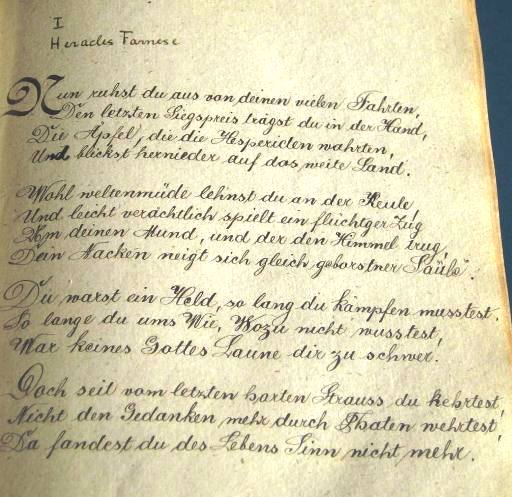 I
Heracles Farnese
Nun ruhst du aus von deinen vielen Fahrten,
Den letzten Siegspreis trägst du in der Hand,
Die Apfel, die die Hesperiden wahrten,
Und blickst hernieder auf das weite Land.
Wohl weltenmüde lehnst du an der Keule,
Und leicht verächtlich spielt ein flüchtger Zug
Um deinen Mund, und der den Himmel trug,
Dein Nacken neigt sich gleich geborstner Säule.
Du warst ein Held, so lang du kämpfen musstest.
So lange du ums Wie, Wozu nicht wusstest,
War keines Gottes Laune dir zu schwer.
Doch seit vom letzten harten Strauss du kehrtest,
Nicht den Gedanken mehr durch Thaten wehrtest,
Da fandest du des Lebens Sinn nicht mehr.